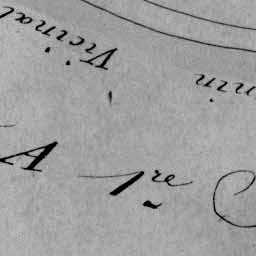 min Vicinal
A 1re